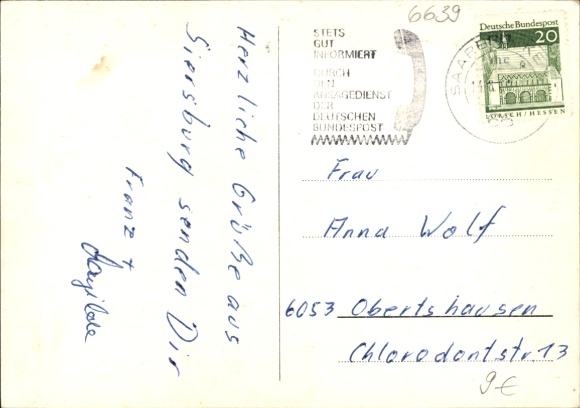 6639
STETS
GUT
INFORMIERT
DURCH
DEN
ANSAGEDIENST
DER
DEUTSCHEN
BUNDESPOST
SAARBR
Deutsche Bundespost
20
LORSCH/HESSEN
Herzliche Grüße aus
Siersburg senden Dir
Franz +
Frau
Anna Wolf
6053 Obertshausen
Chlorodontstr. 13
9 €